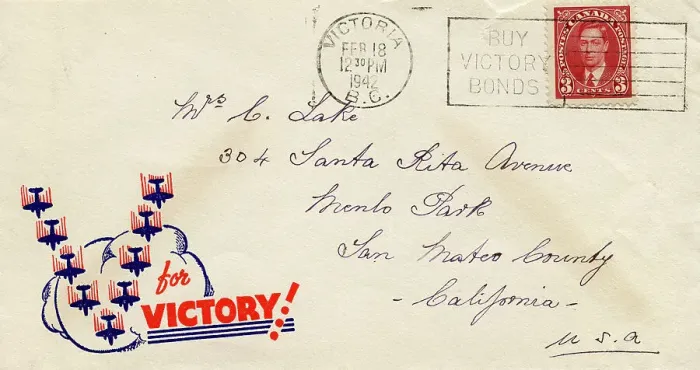 VICTORIA
FEB 18
12 30 PM
1942
B.C.
BUY
VICTORY
BONDS
POSTES CANADA POSTAGE
3 CENTS 3
Mrs C. Lake
304 Santa Rita Avenue
Menlo Park
San Mateo County
- California -
U.S.A
for
VICTORY!